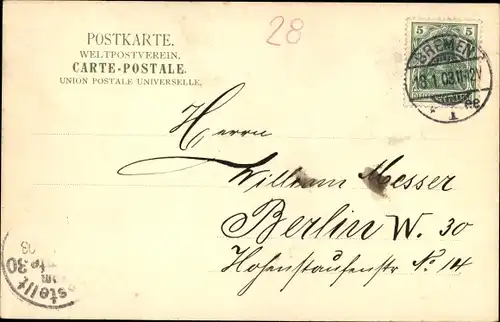 POSTKARTE.
WELTPOSTVEREIN.
CARTE-POSTALE.
UNION POSTALE UNIVERSELLE.
28
5 5
BREMEN
1
Herrn
William Messer
Berlin W. 30
Hohenstaufenstr No 14
30